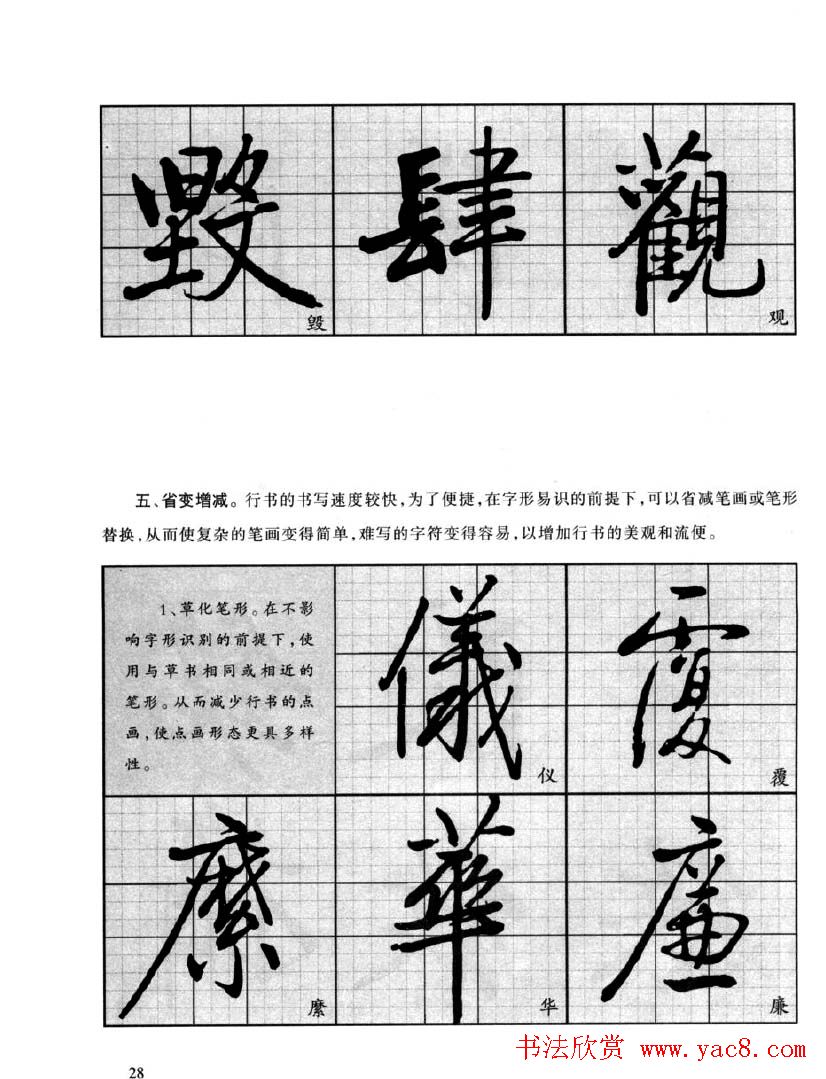 毁 肆 觀
毁 观
五、省变增减。行书的书写速度较快,为了便捷,在字形易识的前提下,可以省减笔画或笔形
替换,从而使复杂的笔画变得简单,难写的字符变得容易,以增加行书的美观和流便。
1、草化笔形。在不影
响字形识别的前提下,使
用与草书相同或相近的
笔形。从而减少行书的点
画,使点画形态更具多样
性。
儀 覆
仪 覆
縻 華 廉
縻 华 廉
书法欣赏 www.yac8.com
28